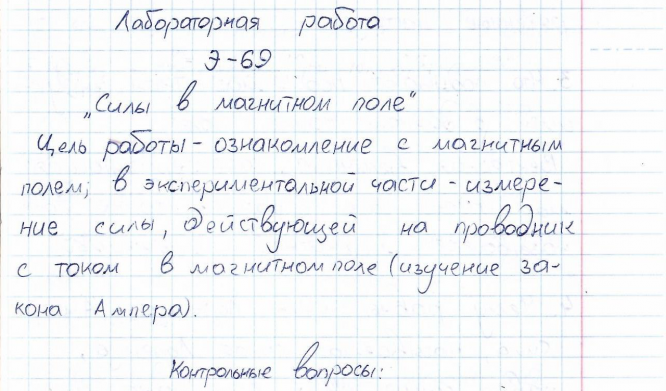 Лабораторная работа
Э-69
„Силы в магнитном поле"
Цель работы - ознакомление с магнитным
полем; в экспериментальной части - измере-
ние силы, действующей на проводник
с током в магнитном поле (изучение за-
кона Ампера).
Контрольные вопросы: